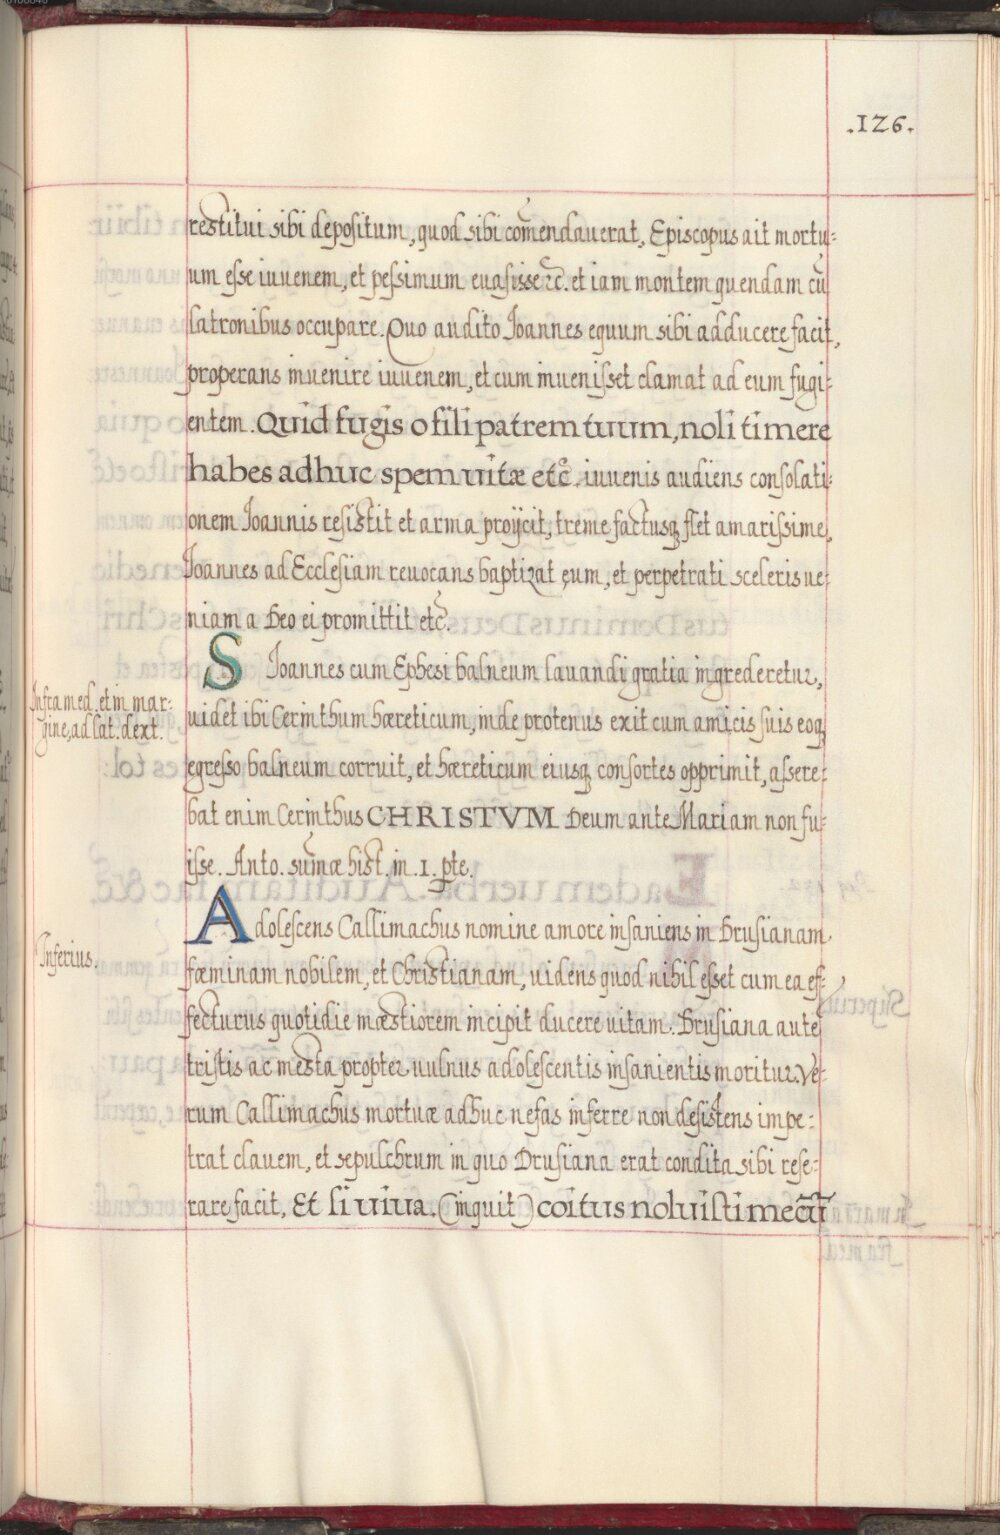 .126.
restitui sibi depositum, quod sibi com̄endauerat, Episcopus ait mortu-
um esse iuuenem, et pessimum euasisse etc̃. et iam montem quendam cũ
latronibus occupare. Quo audito Joannes equum sibi adducere facit,
properans inuenire iuuenem, et cum inuenisset clamat ad eum fugi-
entem. Quid fugis o fili patrem tuum, noli timere
habes adhuc spem uitæ etc̃. iuuenis audiens consolati-
onem Joannis resistit et arma proijcit, treme factusq; flet amarissime,
Joannes ad Ecclesiam reuocans baptizat eum, et perpetrati sceleris ue-
niam a Deo ei promittit etc̃.
S Joannes cum Ephesi balneum lauandi gratia ingrederetur,
Infra med. et in mar-
gine, ad lat. dext.
uidet ibi Cerinthum hæreticum, inde protenus exit cum amicis suis eoq;
egresso balneum corruit, et hæreticum eiusq; consortes opprimit, assere-
bat enim Cerinthus CHRISTVM Deum ante Mariam non fu-
isse. Anto. sum̄æ hist. in .1. p̱te.
Adolescens Callimachus nomine amore insaniens in Drusianam
Inferius.
fæminam nobilem, et Christianam, uidens quod nihil esset cum ea ef-
fecturus quotidie mæstiorem incipit ducere uitam. Drusiana autẽ
tristis ac mesta propter uulnus adolescentis insanientis moritur. Ve-
rum Callimachus mortuæ adhuc nefas inferre non desistens impe-
trat clauem, et sepulchrum in quo Drusiana erat condita sibi rese-
rare facit, Et si uiua. (inquit) coitus noluisti mecũ